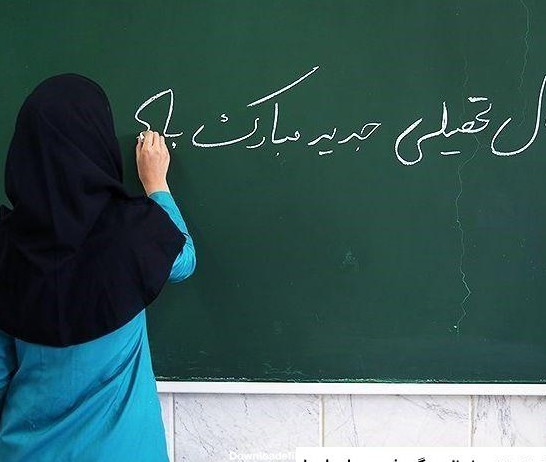 ل تحصیلی جدید مبارک با
Downloadefi